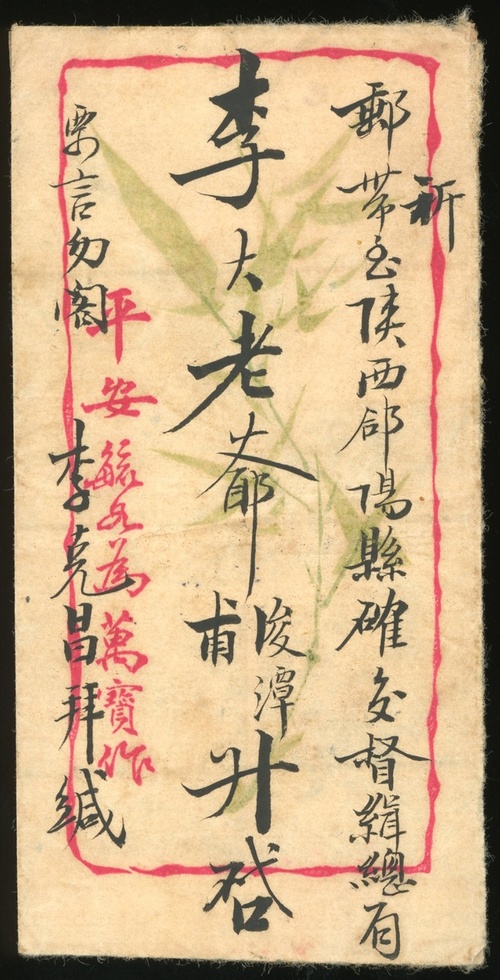 祈
郵帶至陝西郃陽縣確交督緝總局
李大老爺
浚潭
甫
升啓
要言勿閣 李克昌拜緘
平安
萬寶作